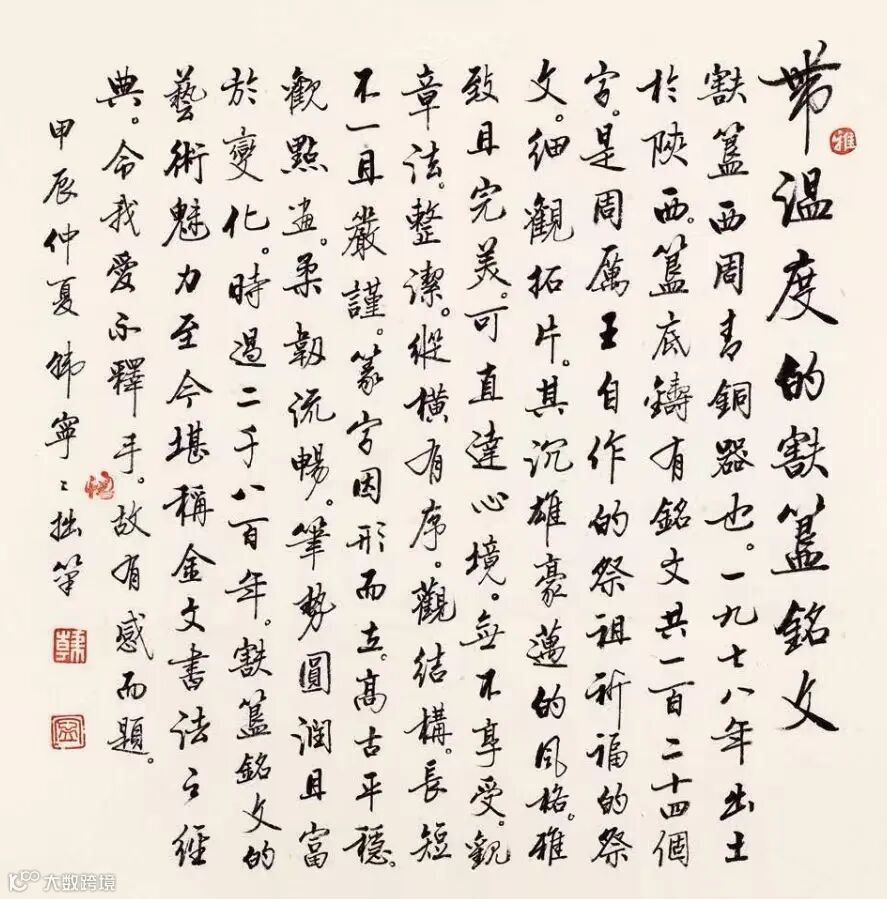 帶溫度的㝬簋銘文
雅
㝬簋西周青銅器也。一九七八年出土
於陝西。簋底鑄有銘文共一百二十四個
字。是周厲王自作的祭祖祈福的祭
文。細觀拓片。其沉雄豪邁的风格。雅
致且完美。可直達心境。無不享受。觀
章法。整潔。縱橫有序。觀結構。長短
不一且嚴謹。篆字因形而立。高古平穩。
觀點畫。柔韌流暢。筆勢圓潤且富
於變化。時過二千八百年。㝬簋銘文的
藝術魅力至今堪稱金文書法之經
典。令我愛不釋手。故有感而題。
甲辰仲夏韓寧〻拙筆
韓
寧
大数跨境